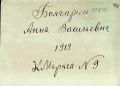 Болгарин
Анна Васильевич
1919
К. Маркса № 9